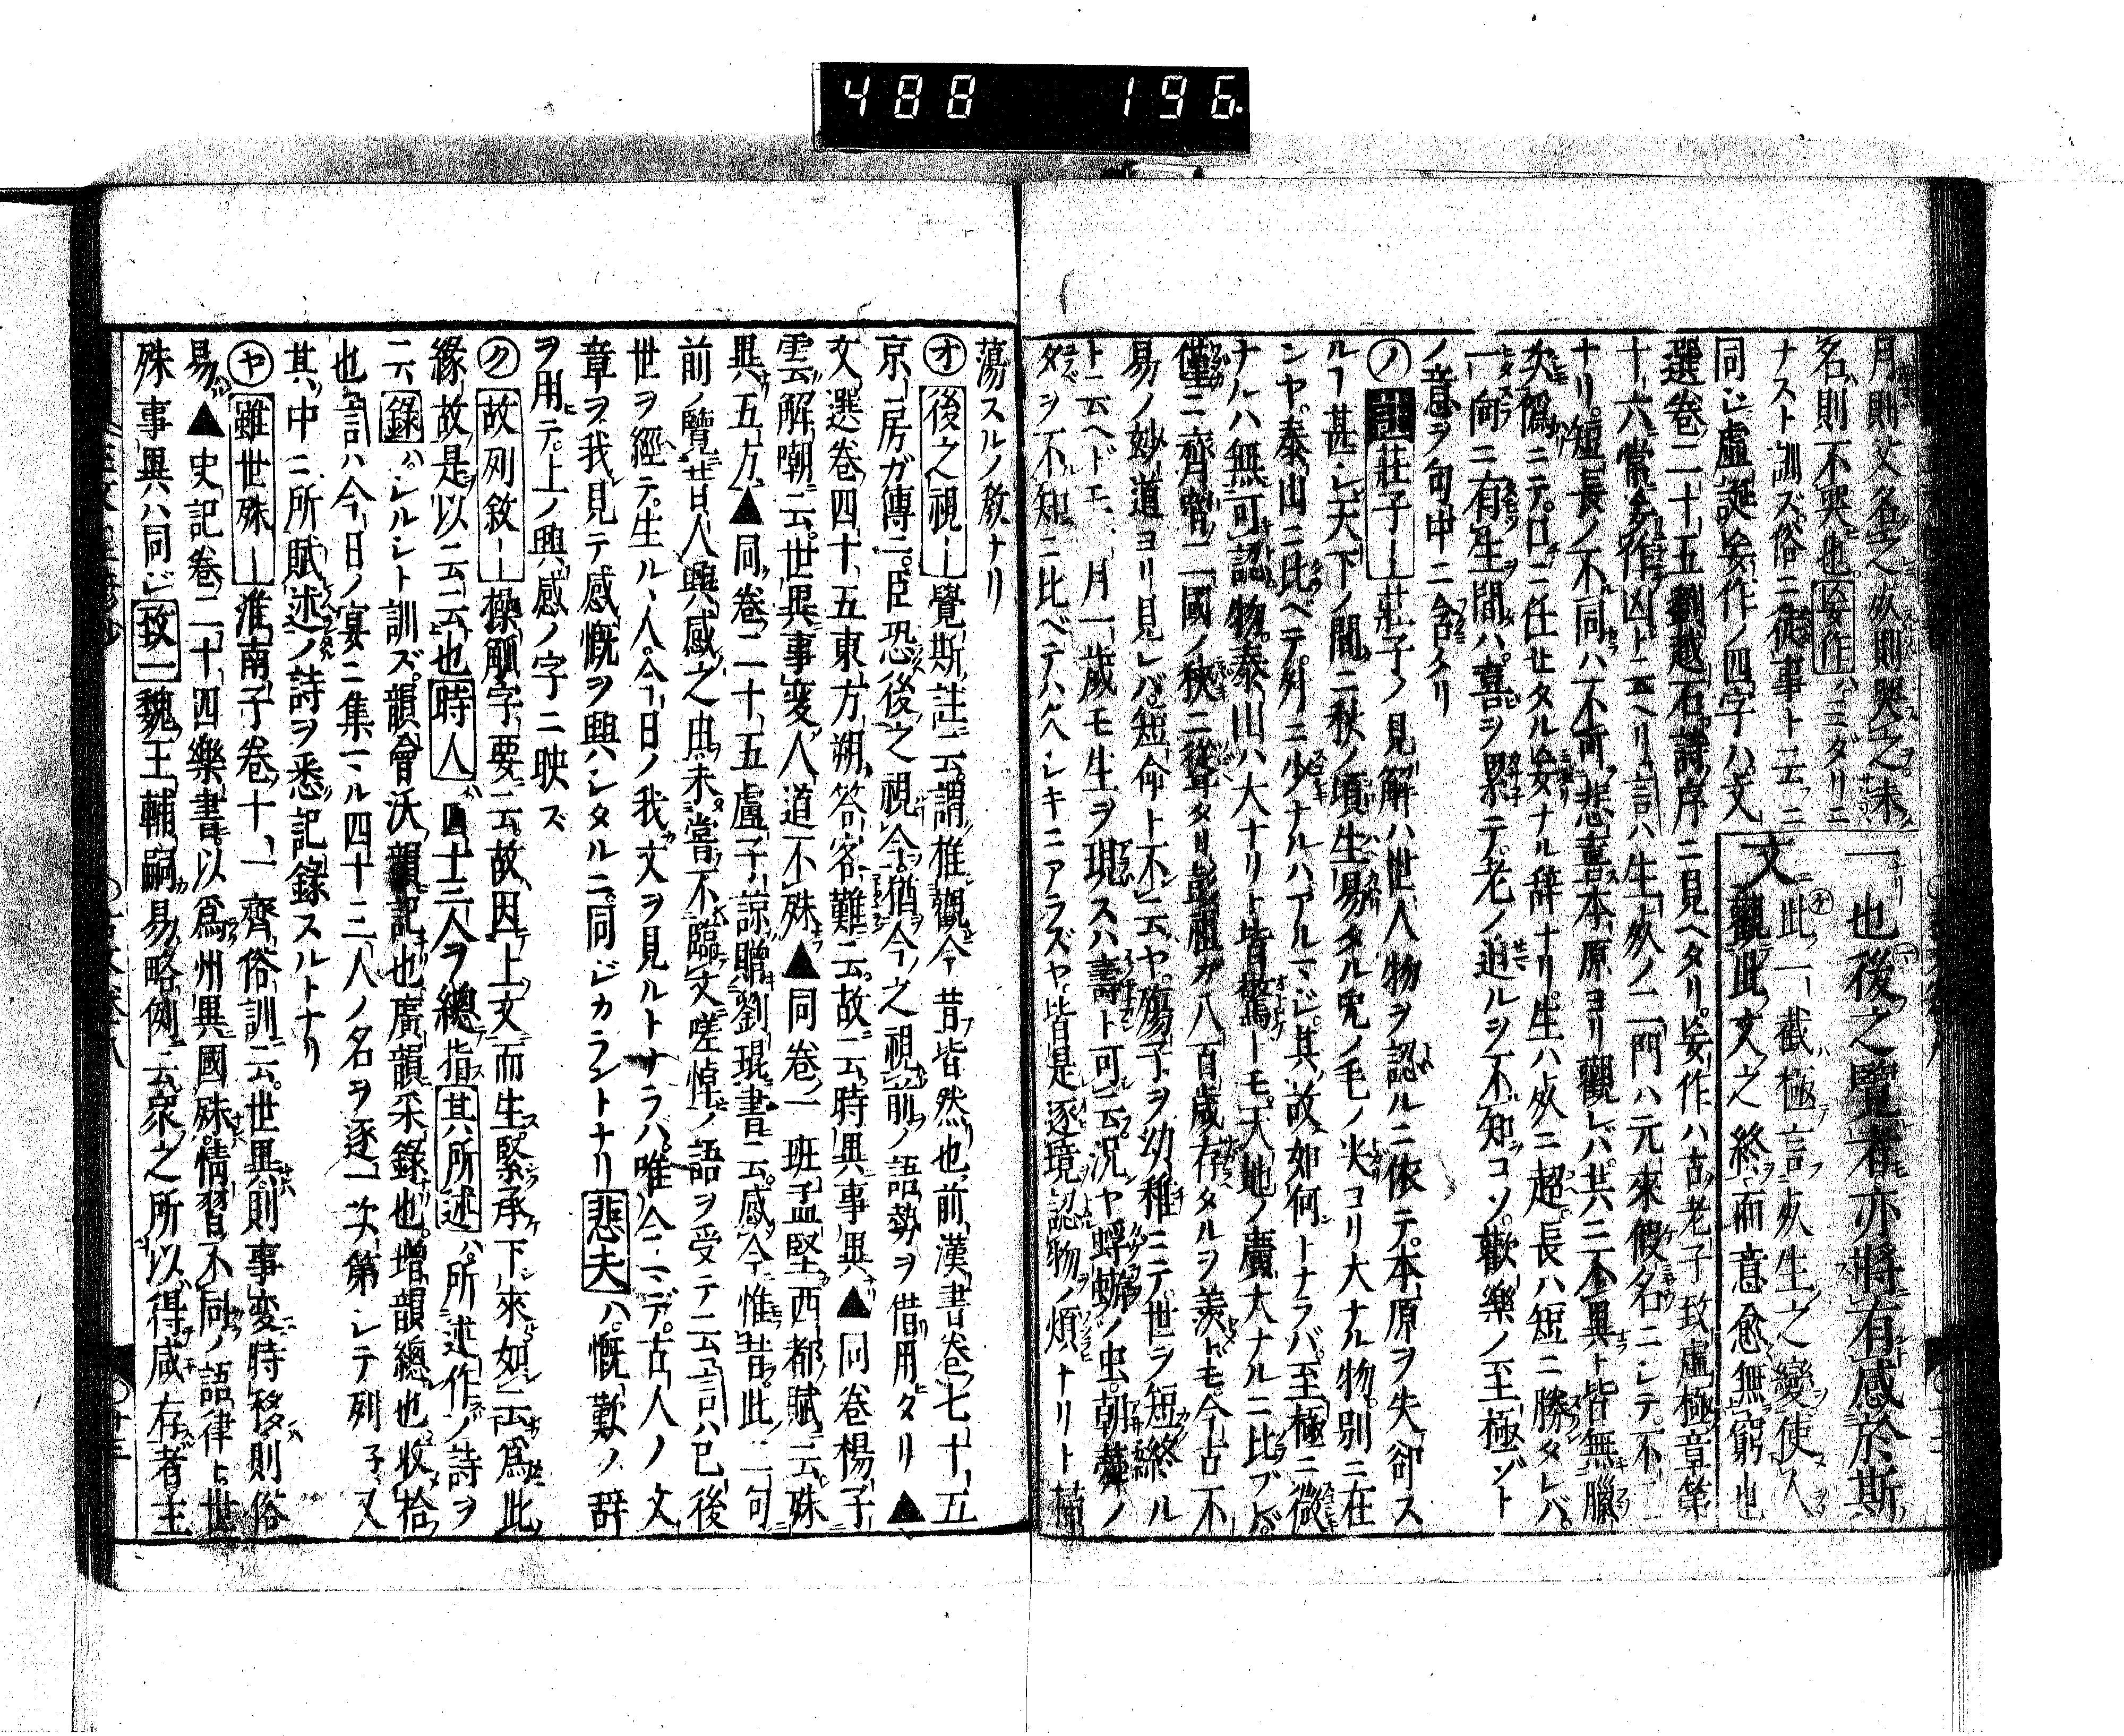 488 196
一也後之覽者亦將有感於斯
文
此一截極言死生之變使人
觀此文之終而意愈無窮也
月則父名之死則哭之未
名則不哭也妄作ハミダリニ
ナスト訓ズ俗ニ徒事ト云フニ
同ジ虛誕妄作ノ四字ハ文
選卷二十五劉越石詩序ニ見ヘタリ妄作ハ古老子致虛極章第
十六常妄作凶ト云ヘリ言ハ生死ノ二門ハ元來假名ニシテ不
ナリ短長ノ不同ハ不可悲喜本原ヨリ觀レバ共ニ不異ト皆無
矢僞ニテ口ニ任セタル妄ナル辞ナリ生ハ死ニ超長ハ短ニ勝タレバ
一向ニ有生間ハ喜ヲ累テ老ノ迫ルヲ不知コソ歡樂ノ至極ゾト
ノ意ヲ句中ニ含タリ
ノ 莊子ー莊子ノ見解ハ世人物ヲ認ルニ依テ本原ヲ失卻ス
ルフ甚シ天下ノ間ニ秋ノ頃生易タル兎ノ毛ノ尖コリ大ナル物別ニ在
ンヤ泰山ニ比ベテ外ニ少ナルハアルマジ其故如何トナラバ至極ニ微
ナルハ無可認物泰山ハ大ナリト皆驚トモ天地ノ廣大ナルニ比ブレバ
僅ニ齊魯二國ノ秋ニ從タリ彭祖ガ八百歲存タルヲ羨トモ今古不
易ノ妙道ヨリ見レバ短命ト不云ヤ殤子ヲ幼稚ニテ世ヲ短終ル
ト云ヘドモ一月一歲モ生ヲ現スハ壽ト可云況ヤ蜉蝣ノ虫朝蕣ノ
タベヲ不知ニ比ベテハ久シキニアラズヤ皆是逐境認物ノ煩ナリト
蕩スルノ教ナリ
オ 後之視ー覺斯註云謂推觀今昔皆然也前漢書卷七十五
京房ガ傳ニ臣恐後之視今猶今之視前ノ語勢ヲ借用タリ▲
文選卷四十五東方朔答客難云故云時異事異▲同卷楊子
雲解嘲云世異事変人道不殊▲同卷一班孟堅西都賦云殊
異五方▲同卷二十五盧子諒贈劉琨書云感今惟昔此二句
前ノ覽昔人興感之由未嘗不臨文嗟悼ノ語ヲ受テ云言ハ已後
世ヲ經テ生ル人今日ノ我文ヲ見ルトナラハ唯今マデ古人ノ文
章ヲ我見テ感慨ヲ興シタルニ同ジカラントナリ悲夫ハ慨歎ノ辞
ヲ用テ上ノ興感ノ字ニ映ズ
ク 故列敘ー操觚字要云故因上文而生緊承下來如云爲此
緣故是以云云也時人ハ四十三人ヲ總指其所述ハ所述作ノ詩ヲ
云錄ハシルシト訓ズ韻會沃韻記也廣韻采錄也增韻總也收拾
也言ハ今日ノ宴ニ集マル四十三人ノ名ヲ逐一次第シテ列子又
其中ニ所賦述ノ詩ヲ悉記錄スルトナリ
ヤ 雖世殊ー淮南子卷十一齊俗訓云世異則事変時移則俗
易▲史記卷二十四樂書以爲州異國殊情習不同ノ語律ト世
殊事異ハ同ジ致一魏王輔嗣易略例云衆之所以得咸存者主